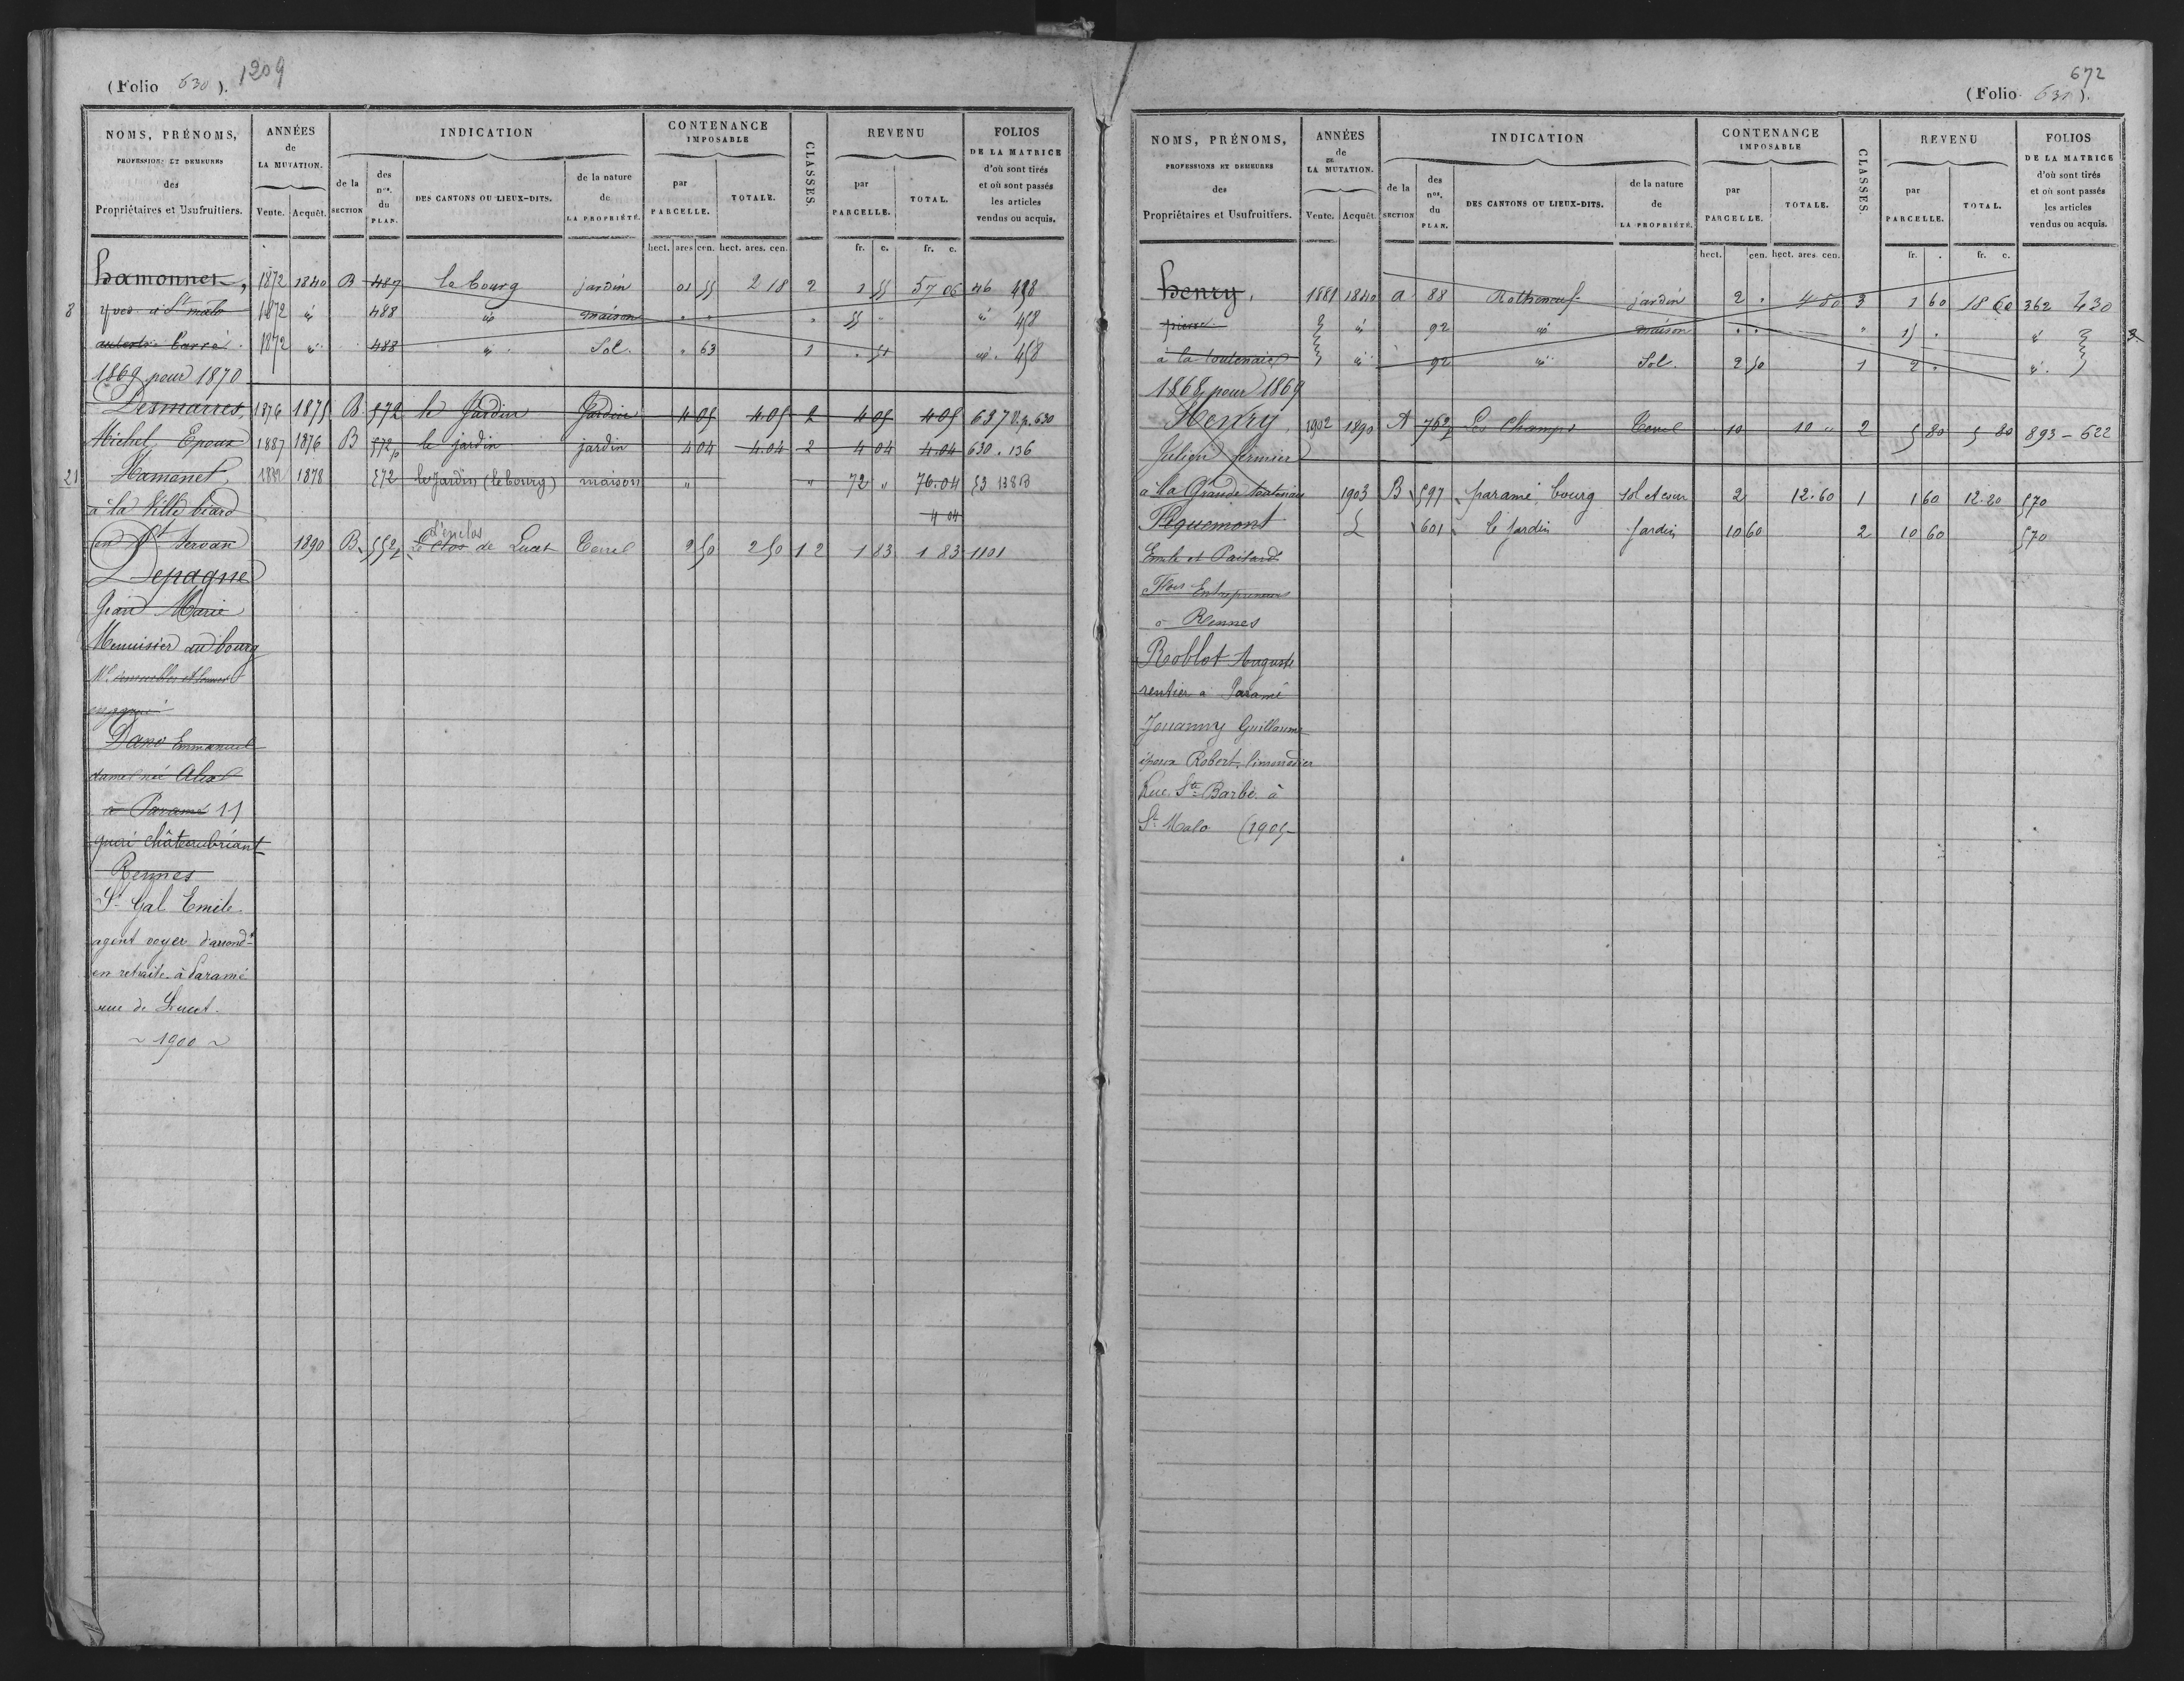 (Folio 630). 1209
NOMS, PRÉNOMS,
PROFESSIONS ET DEMEURES
des
Propriétaires et Usufruitiers.
ANNÉES
de
LA MUTATION.
Vente. Acquêt.
INDICATION
de la
SECTION
des
nos.
du
PLAN.
DES CANTONS OU LIEUX-DITS.
de la nature
de
LA PROPRIÉTÉ.
CONTENANCE
IMPOSABLE
par
PARCELLE.
TOTALE.
hect. ares cen. hect. ares. cen.
CLASSES.
REVENU
par
PARCELLE.
TOTAL.
fr. c. fr. c.
FOLIOS
DE LA MATRICE
d'où sont tirés
et où sont passés
les articles
vendus ou acquis.
hamonnet, 1872 1840 B 487 le bourg jardin 01 55 2 18 2 1 55 57 06 46 458
8 yves à St malo 1872 id 488 id maison " " " 55 " id 458
1872 id 488 id Sol " 63 1 " 51 id 458
1869 pour 1870
Desmarres, 1876 1875 B 572 le Jardin Jardin 4 05 4.05 2 4 05 4 05 637 V.p. 630
Michel, Epoux 1887 1876 B 572p le jardin jardin 4 04 4.04 2 4 04 4.04 630. 136
21 Hamonet, 1882 1878 572 le Jardin (le bourg) maison " " 72 " 76.04 53 1381
à la Ville biard 4 04
en St Servan 1890 B 552p l'enclos Le Clos de Lucet Terrel 2 50 2 50 1 2 1 83 1 83 1101
Depagne
Jean Marie
Menuisier au bourg
Dano Emmanuel
dame née Alix
à Paramé 11
quai châteaubriant
Rennes
St Gal Emile
agent voyer d'arrondt
en retraite à Paramé
rue de Lucet.
~ 1900 ~
672
(Folio 631).
NOMS, PRÉNOMS,
PROFESSIONS ET DEMEURES
des
Propriétaires et Usufruitiers.
ANNÉES
de
LA MUTATION.
Vente. Acquêt.
INDICATION
de la
SECTION
des
nos.
du
PLAN.
DES CANTONS OU LIEUX-DITS.
de la nature
de
LA PROPRIÉTÉ.
CONTENANCE
IMPOSABLE
par
PARCELLE.
TOTALE.
hect. cen. hect. ares. cen.
CLASSES.
REVENU
par
PARCELLE.
TOTAL.
fr. . fr. c.
FOLIOS
DE LA MATRICE
d'où sont tirés
et où sont passés
les articles
vendus ou acquis.
henry, 1881 1840 a 88 Rotheneuf jardin 2 " 4 50 3 1 60 18 60 362 430
pierre id 92 id maison " " " 15 " id
à la toutenais id 92 id Sol 2 50 1 2 " id
1868 pour 1869
Henry, 1902 1890 A 762p Les Champs Terrel 10 10 " 2 5 80 5 80 893 - 622
Julien fermier
à la Grande toutenais 1903 B 597 paramé bourg sol et cour 2 12.60 1 1 60 12.20 570
Piquemont 601 le Jardin Jardin 10 60 2 10 60 570
Emile et Paitard
Flois Entrepreneurs
à Rennes
Roblot Auguste
rentier à Paramé
Jouanny Guillaume
époux Robert, limonadier
Rue Ste Barbe à
St Malo (1905-